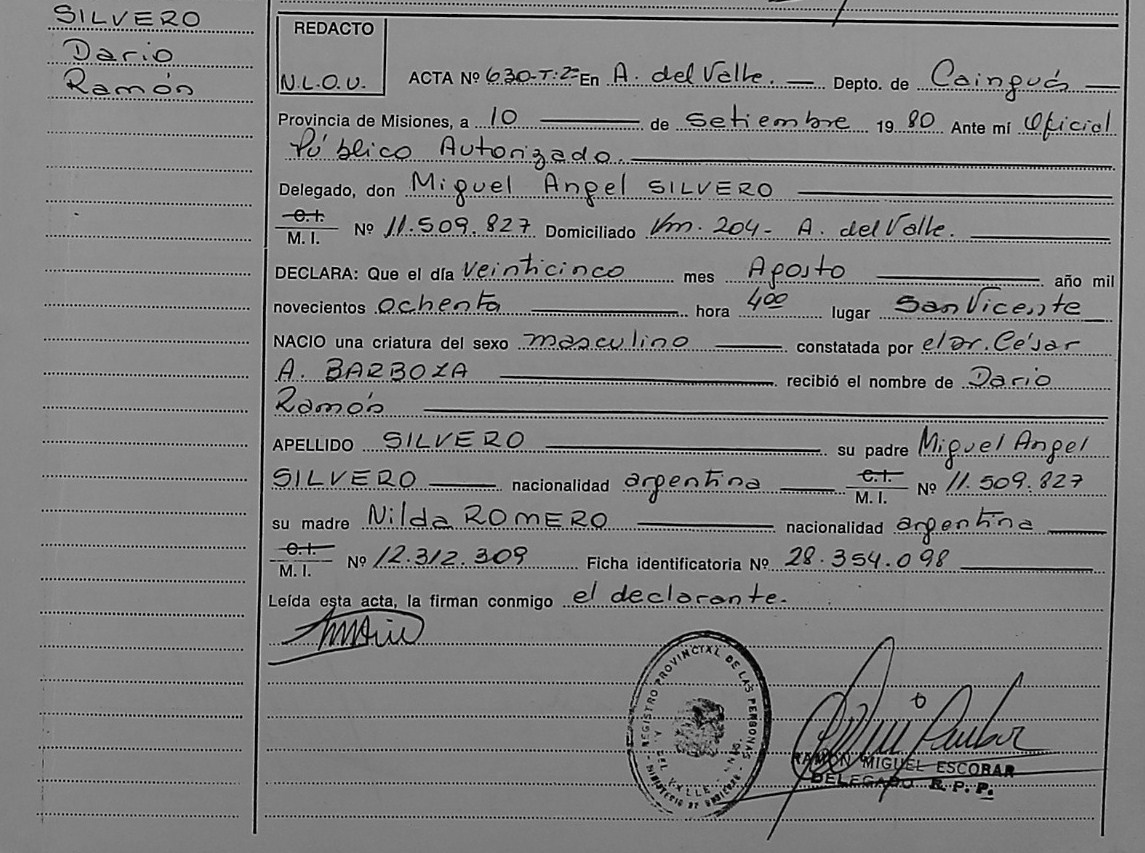 SILVERO
Dario
Ramón
REDACTO
N.L.O.U.
ACTA Nº 630-T:2º En A. del Valle. Depto. de Cainguás
Provincia de Misiones, a 10 de setiembre 19 80 Ante mí Oficial
Público Autorizado
Delegado, don Miguel Angel SILVERO
C.I.
M. I. Nº 11.509.827 Domiciliado Km. 204- A. del Valle.
DECLARA: Que el día veinticinco mes Agosto año mil
novecientos ochenta hora 4⁰⁰ lugar San Vicente
NACIO una criatura del sexo masculino constatada por el Dr. César
A. BARBOZA recibió el nombre de Dario
Ramón
APELLIDO SILVERO su padre Miguel Angel
SILVERO nacionalidad argentina C.I. M. I. Nº 11.509.827
su madre Nilda ROMERO nacionalidad argentina
C.I.
M. I. Nº 12.312.309 Ficha identificatoria Nº 28.354.098
Leída esta acta, la firman conmigo el declarante.
REGISTRO PROVINCIAL DE LAS PERSONAS
DEL VALLE
RAMON MIGUEL ESCOBAR
DELEGADO R. P. P.